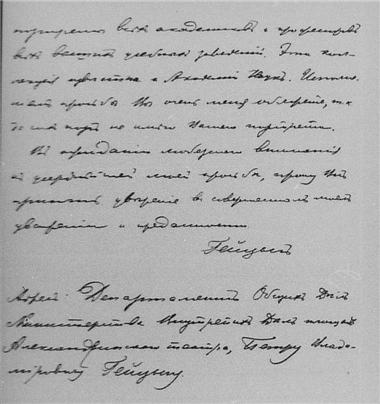 портреты всѣхъ академиковъ и профессоровъ
всѣхъ высшихъ учебныхъ заведеній. Эта кол-
лекція и Академіи Наукъ. Исполн
просьбы Вы очень меня обяжете, т.к
до сихъ поръ не имѣю Вашего портрета.
Въ ожиданіи любезнаго вниманія
къ моей просьбѣ, прошу Васъ
принять увѣреніе въ совершенномъ моемъ
уваженіи и преданности.
Гейцынъ
Адресъ: Департаментъ Общихъ Дѣлъ
Министерства Внутреннихъ Дѣлъ площадь
Александринскаго театра, Петру Влади-
міровичу Гейцыну.